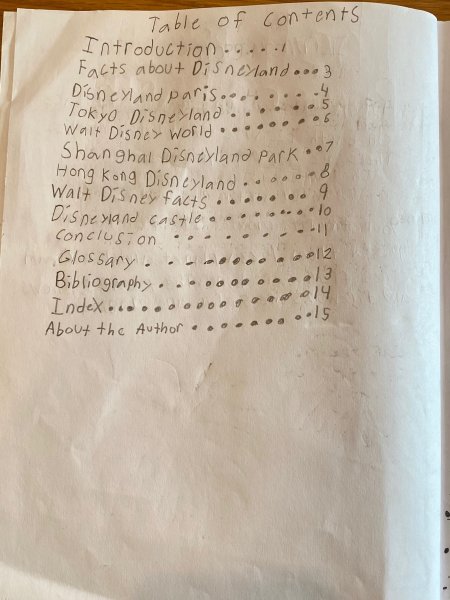 Table of Contents
Introduction.....1
Facts about Disneyland...3
Disneyland paris........4
Tokyo Disneyland.......5
Walt Disney World.......6
Shanghai Disneyland Park..7
Hong Kong Disneyland......8
Walt Disney facts.......9
Disneyland castle........10
Conclusion........11
Glossary.........12
Bibliography.........13
Index.............14
About the Author.......15